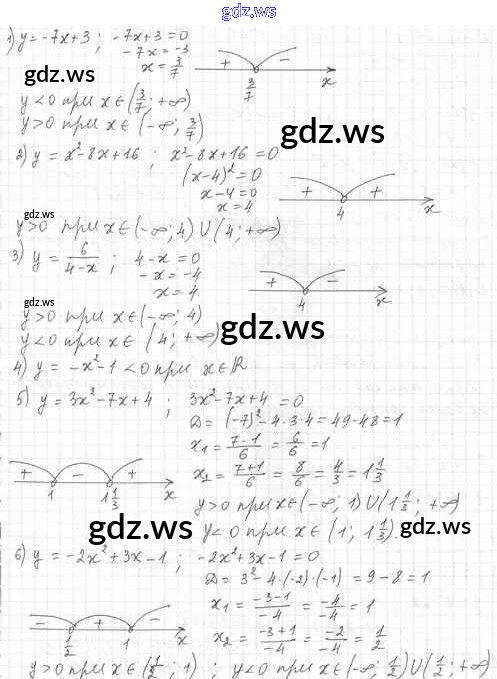 gdz.ws
1) y = -7x+3 ; -7x+3=0
-7x = -3
x = 3/7
+ - 3/7 x
gdz.ws
y<0 при x∈(3/7; +∞)
y>0 при x∈(-∞; 3/7)
gdz.ws
2) y = x²-8x+16 ; x²-8x+16=0
(x-4)²=0
x-4=0
x=4
+ + 4 x
y>0 при x∈(-∞; 4)∪(4; +∞)
3) y = 6/(4-x) ; 4-x=0
-x=-4
x=4
+ - 4 x
gdz.ws
y>0 при x∈(-∞; 4)
gdz.ws
y<0 при x∈(4; +∞)
4) y = -x²-1 <0 при x∈R
5) y = 3x²-7x+4 ; 3x²-7x+4=0
D = (-7)²-4·3·4=49-48=1
x₁ = (7-1)/6 = 6/6 = 1
x₂ = (7+1)/6 = 8/6 = 4/3 = 1 1/3
+ - + 1 1 1/3 x
y>0 при x∈(-∞; 1)∪(1 1/3; +∞)
gdz.ws
y<0 при x∈(1; 1 1/3)
gdz.ws
6) y = -2x²+3x-1 ; -2x²+3x-1=0
D = 3²-4·(-2)·(-1)=9-8=1
x₁ = (-3-1)/-4 = -4/-4 = 1
x₂ = (-3+1)/-4 = -2/-4 = 1/2
- + - 1/2 1 x
gdz.ws
y>0 при x∈(1/2; 1) ; y<0 при x∈(-∞; 1/2)∪(1/2; +∞)